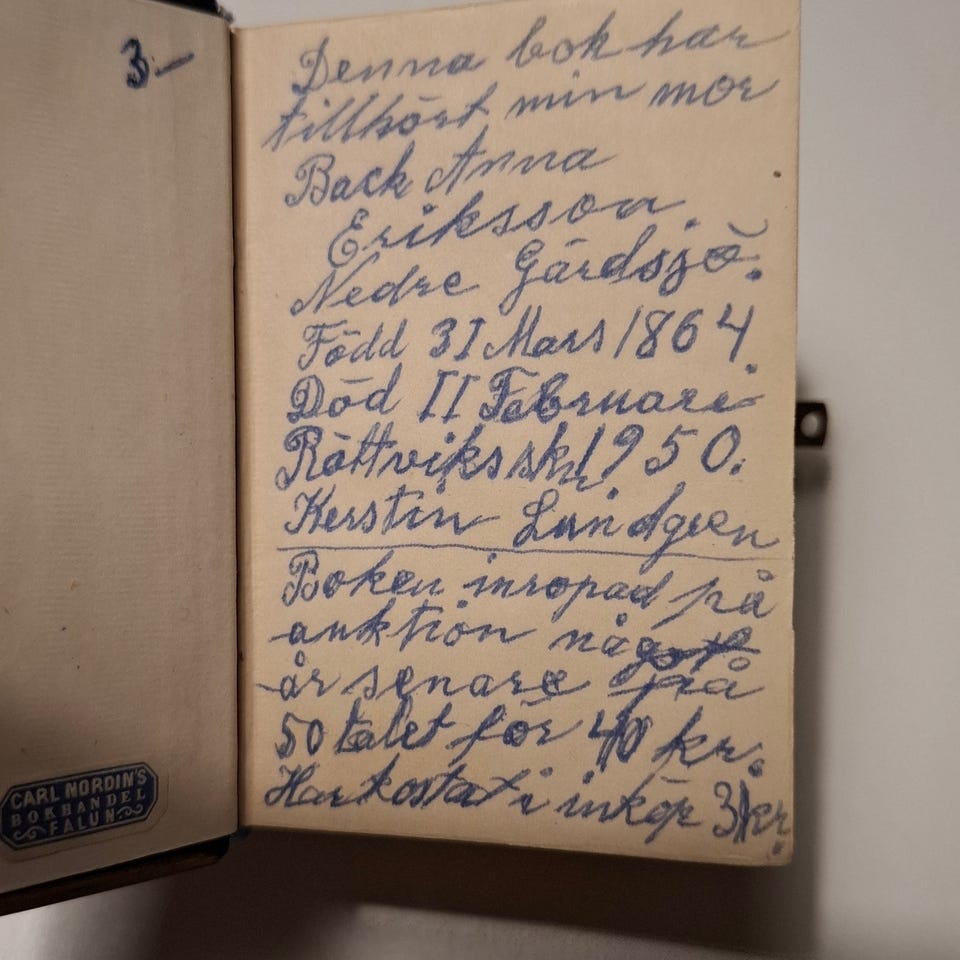 3.-
Denna bok har
tillhört min mor
Back Anna
Eriksson.
Nedre Gärdsjö.
Född 31 Mars 1864.
Död 11 Februari
Rättviks sk. 1950.
Kerstin Lundgren
Boken inropad på
auktion något
år senare på
50 talet för 40 kr.
Har kostat i inköp 3 kr.
CARL NORDIN'S
BOKHANDEL
FALUN.